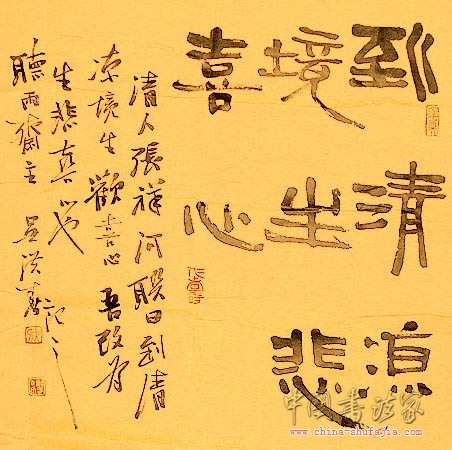 到清凉
境生悲
喜心
清人張祥河聯曰到清
凉境生歡喜心吾改为
生悲心也
聽雨齋主 吴洪记之
中国书法家
www.china-shufajia.com